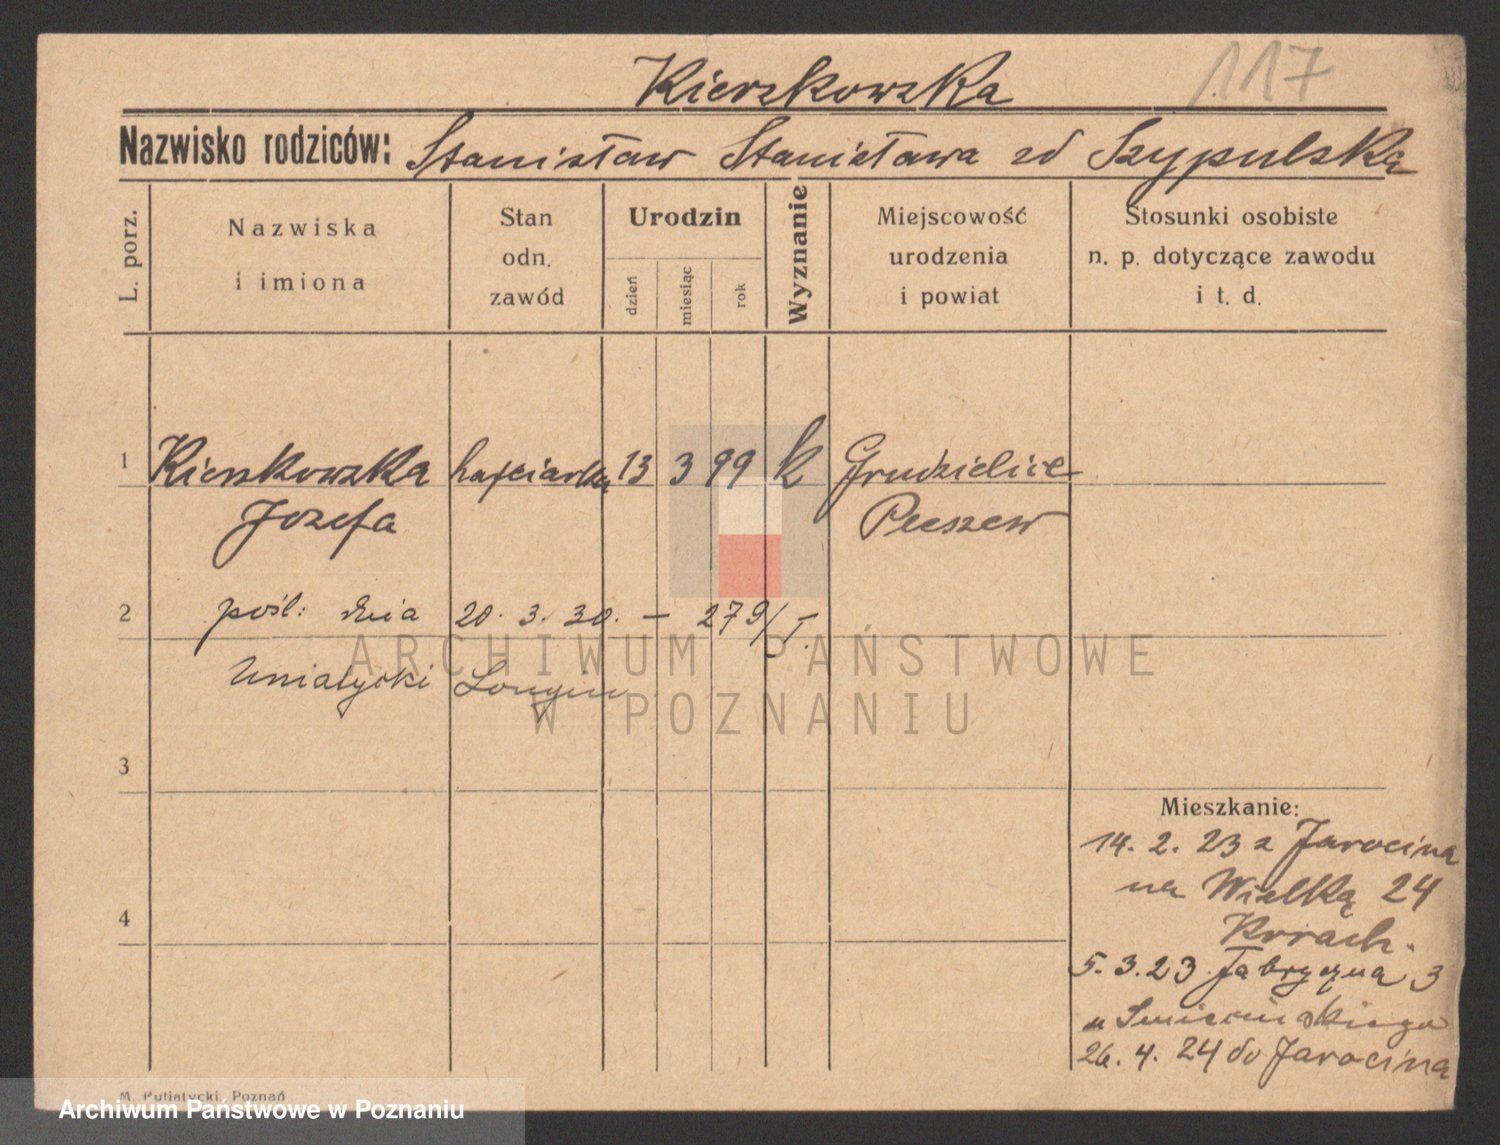 Kierzkowska
117
Nazwisko rodziców: Stanisław Stanisława zd Szypulska
L. porz.
Nazwiska
i imiona
Stan
odn.
zawód
Urodzin
dzień
miesiąc
rok
Wyznanie
Miejscowość
urodzenia
i powiat
Stosunki osobiste
n. p. dotyczące zawodu
i t. d.
1 Kierzkowska hafciarka 13 3 99 k Grudzielice
Józefa Pleszew
2 pośl: dnia 20. 3. 30. — 279/I.
Longin
3
4
Mieszkanie:
14. 2. 23 z Jarocina
na Wielką 24
5. 3. 23 Fabryczna 3
u
26. 4. 24 do Jarocina
M. Putiatycki, Poznań
ARCHIWUM PAŃSTWOWE
W POZNANIU
Archiwum Państwowe w Poznaniu